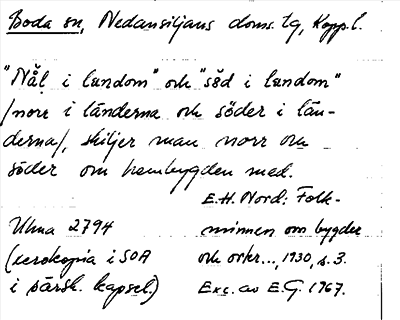 Boda sn, Nedansiljans doms. tg, Kopp. l.
"Nål i landom" och "söd i landom"
/norr i länderna och söder i län-
derna/, skiljer man norr och
söder om hembygden med.
E.H. Nord: Folk-
Ulma 2794 minnen om bygder
(xerokopia i SOA och orter..., 1930, s. 3.
i särsk. kapsel.) Exc. av E.G. 1967.